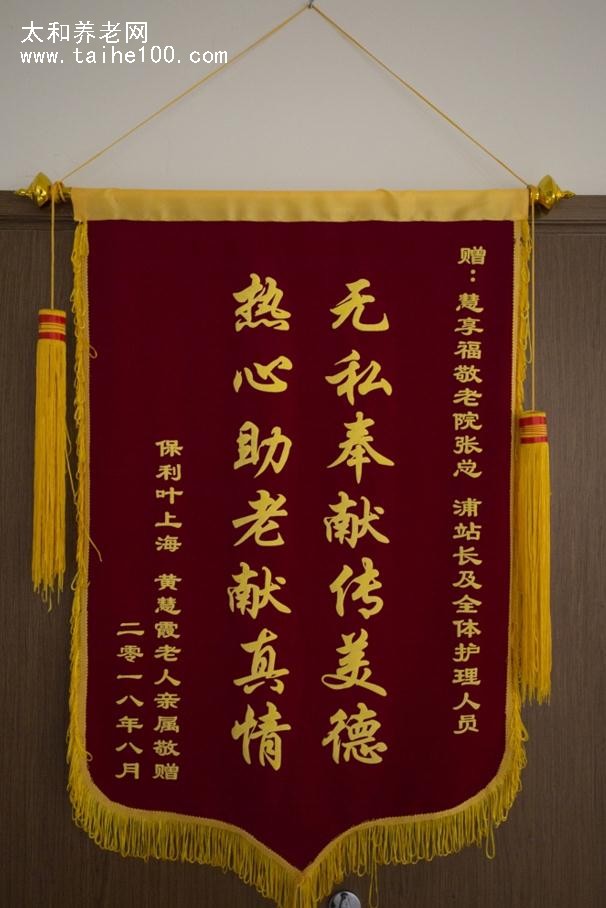 太和养老网
www.taihe100.com
赠：慧享福敬老院张总 浦站长及全体护理人员
无私奉献传美德
热心助老献真情
保利叶上海 黄慧霞老人亲属敬赠
二零一八年八月